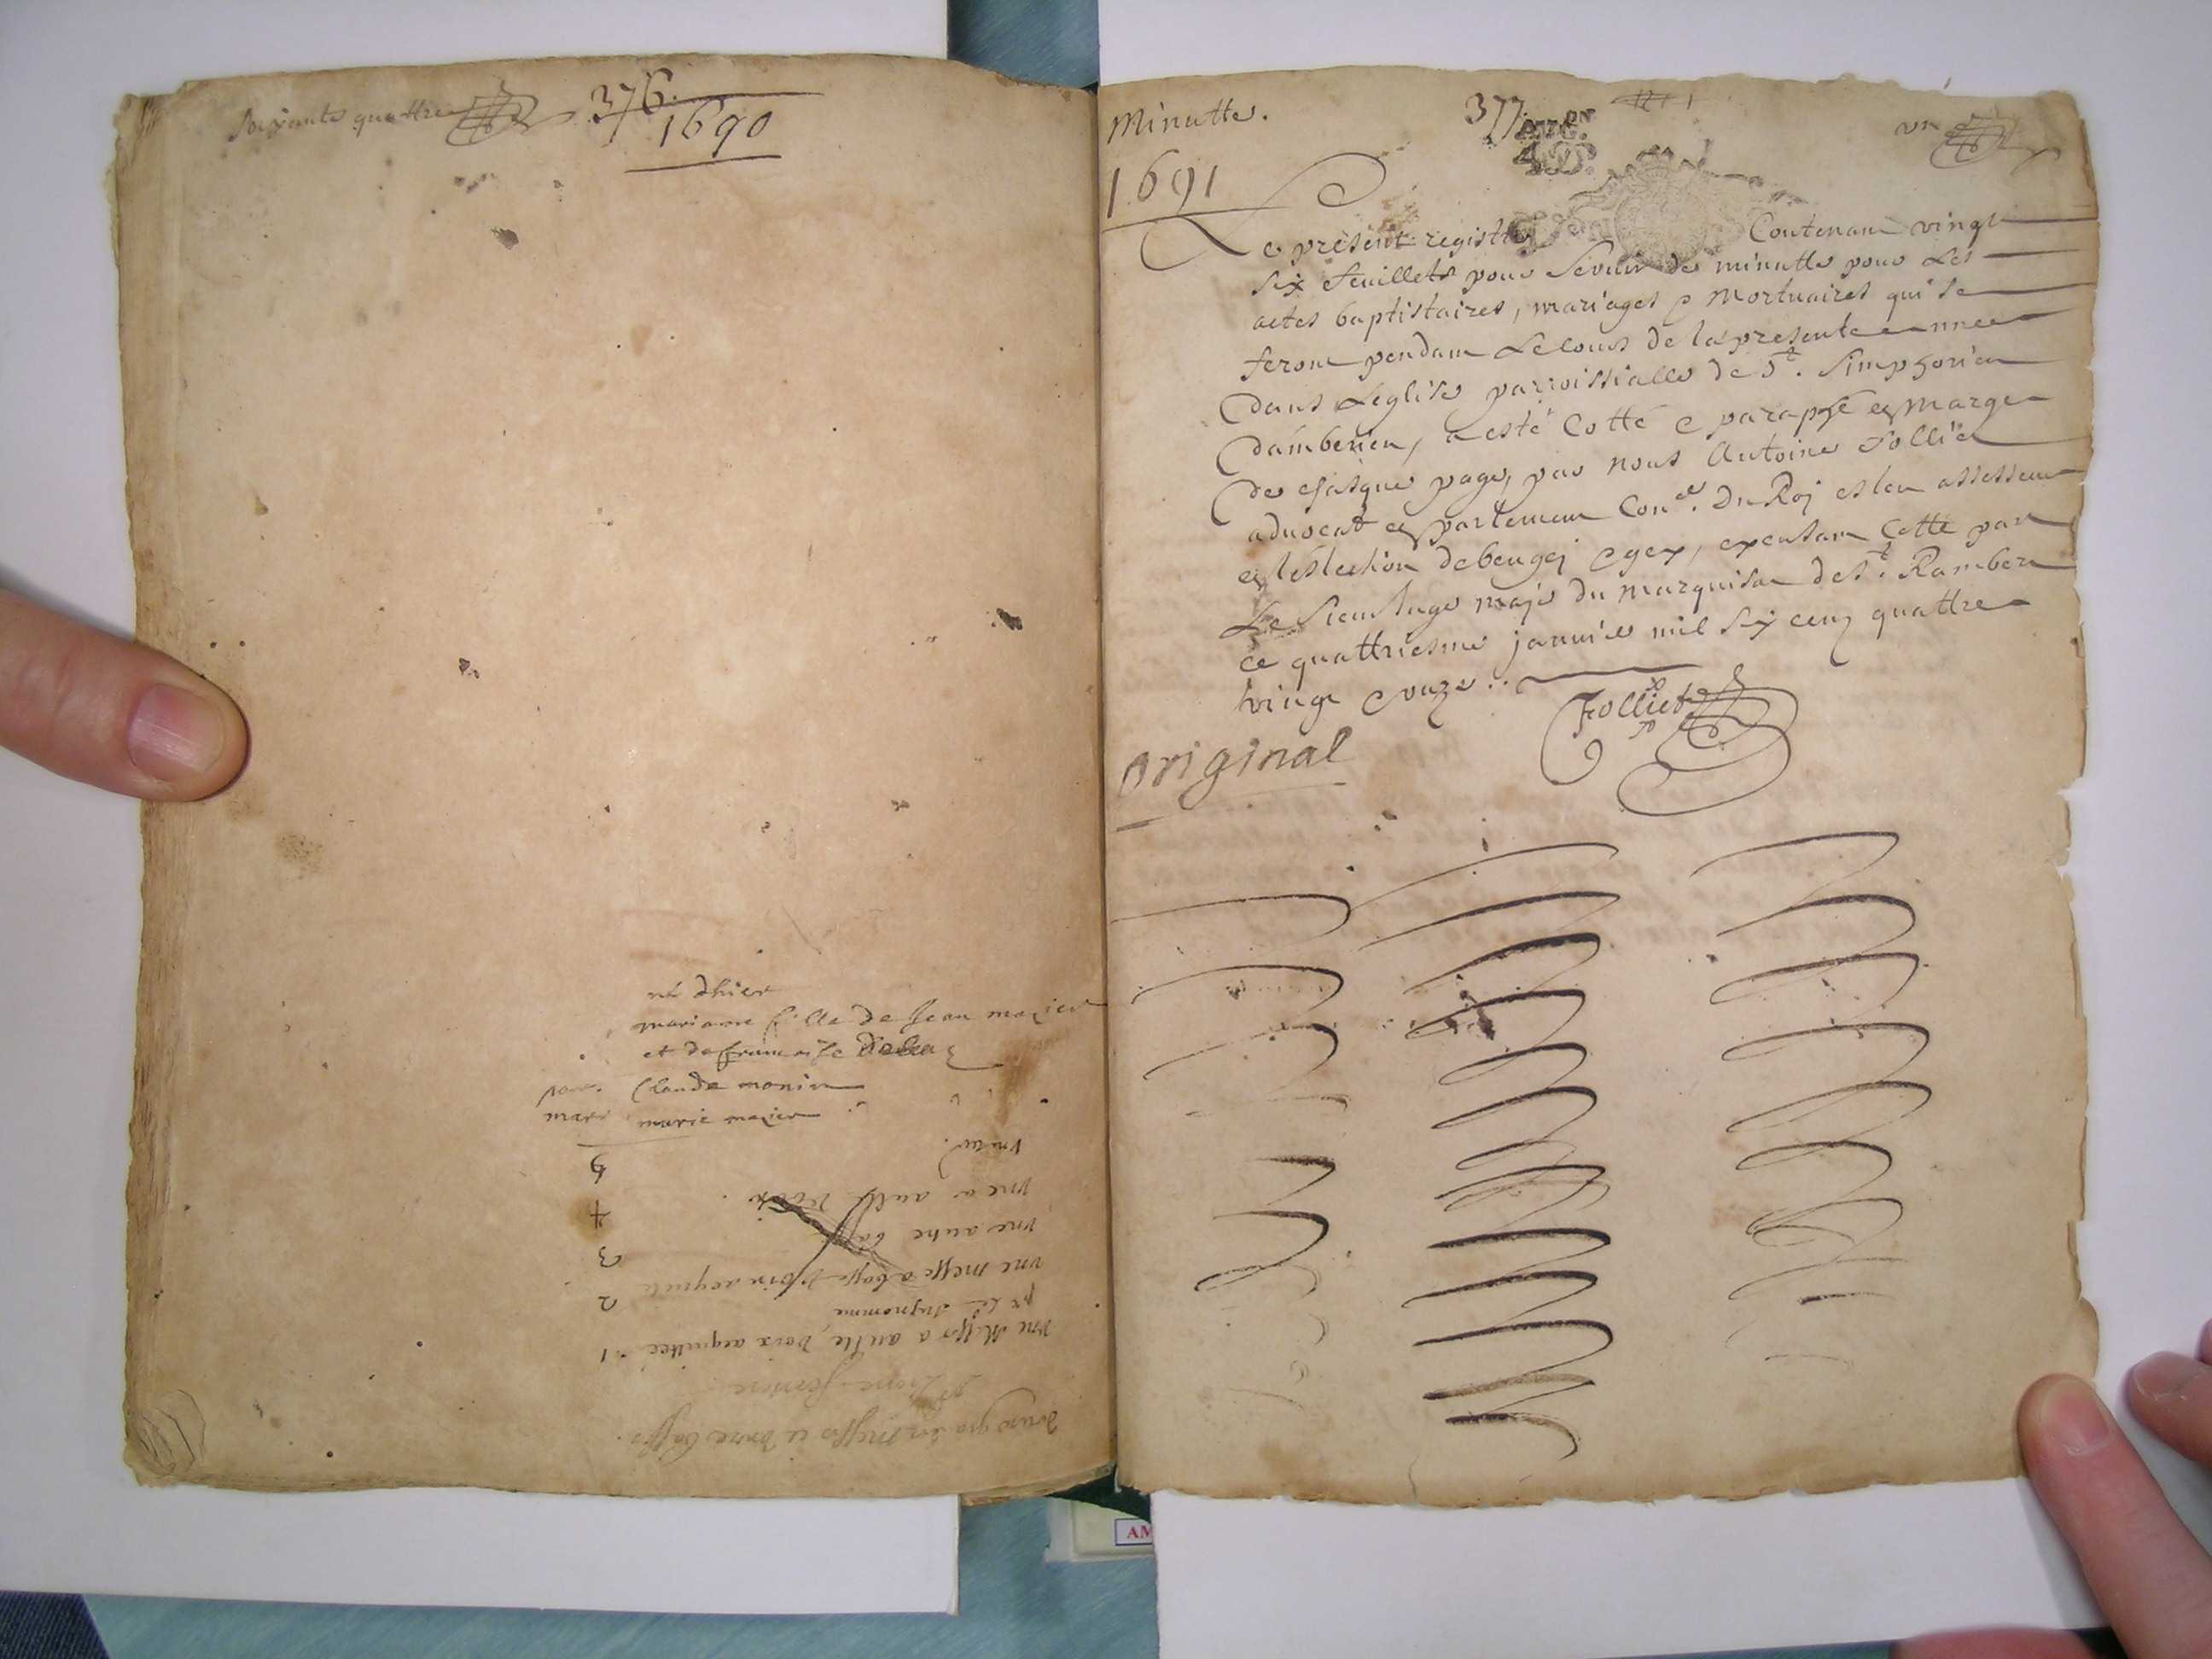 soixante quattre
376.
1690
né d'hier
mariane fille de Jean mazier
et de francoise
par. Claude monin
mare marie mazier
deux grandes messes et douze basses.
une Messe a aulte voix acquittée 1
pr le susnommé
une messe a basse voix acquitté 2
une autre basse 3
une a aulte voix 4
5
Minutte.
377.
un
1691
Le présent registre Contenant vingt
six feuillets pour servir de minutte pour Les
actes baptistaires, mariages & Mortuaires qui se
feront pendant Le cours de la presente annee
dans L'eglise parroissialle de St. Simphorien
damberieu, a esté Cotté & paraphé en Marge
de chasque page, par nous Antoine Folliet
advocat en parlement Coner. Du Roj esleu assesseur
en l'eslection de beugej & gex, exersant Cette part
Le Sieur Juge maje du marquisat de St. Rambert
ce quattriesme janvier mil six cens quattre
vingt & unze.
Folliet
original
AM